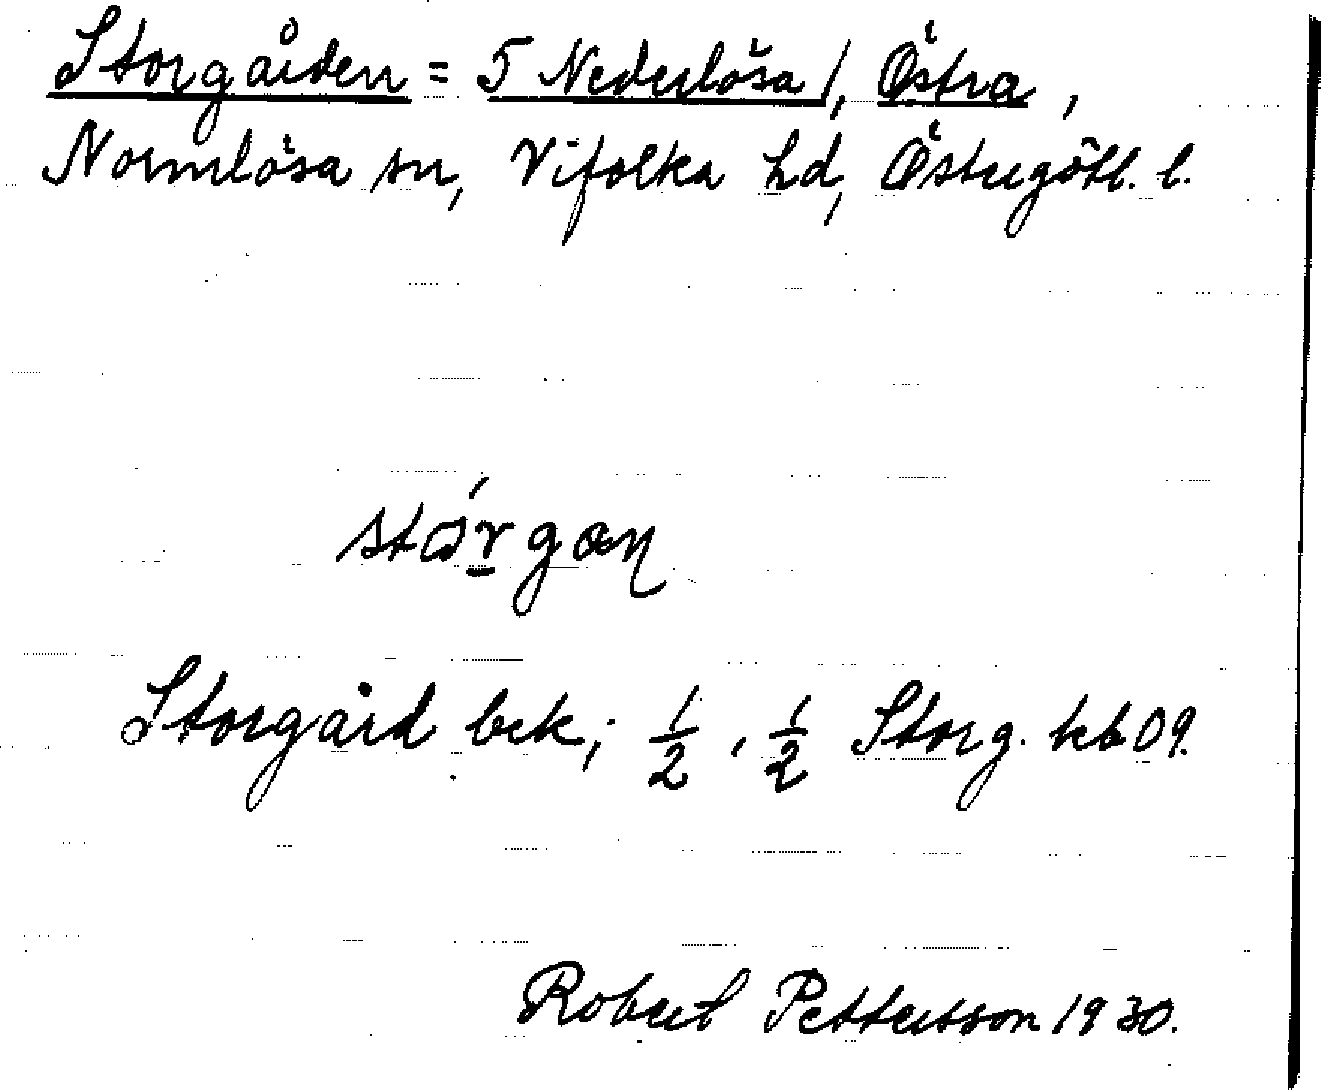 Storgården = 5 Nederlösa 1, Östra,
Normlösa sn, Vifolka hd, Östergötl. l.
Storgård bek; 1/2, 1/2 Storg. kb 09.
Robert Pettersson 1930.